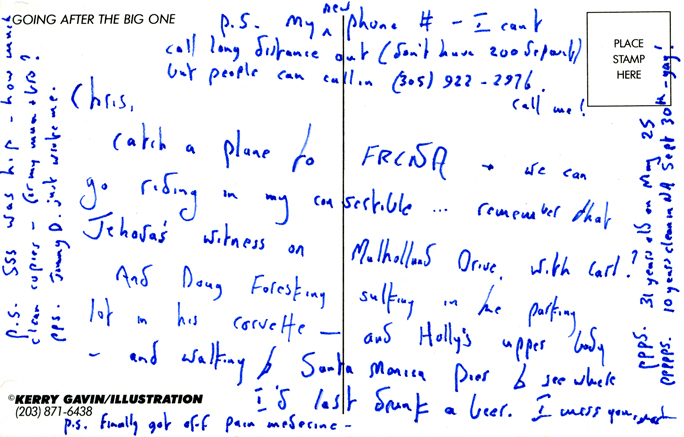 GOING AFTER THE BIG ONE
p.s. My new phone # - I can't
call long distance out (don't have 200 deposit)
but people can call in (305) 922-2976.
call me!
PLACE
STAMP
HERE
Chris,
catch a plane to FRCNA → we can
go riding in my convertible ... remember that
Jehova's witness on Mulholland Drive, with Carl?
And Doug Foresting sulking in the parking
lot in his corvette — and Holly's upper body
- and walking to Santa Monica Pier to see where
I'd last drunk a beer. I miss you,
p.s. Finally got off pain medecine -
©KERRY GAVIN/ILLUSTRATION
(203) 871-6438
p.s. SSS was hip - how much
clean copies - (for my mum + bro?
pps. Jimmy D. just wrote me.
pppps. 31 years old on May 25
pppppps. 10 years clean in NA Sept 30th - yay!